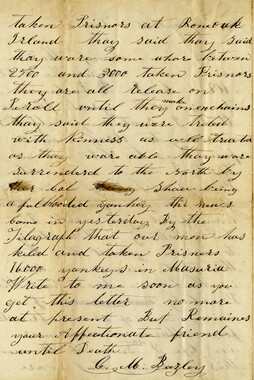 taken Prisnors at Roneoak
Irland thay said thay said
thay ware some whare betwen
2500 and 3000 taken Prisnors
they are all release on
Peroll until they make exenchains
thay said they were treted
with kinness as well treatid
as thay ware able they ware
surrenderd to the North by
Col Shaw being
a fulblooded yankey the news
come in yesterday by the
Tilagraph that our men has
kiled and taken Prisners
16000 yankeys in Masuria
Write to me soon as you
get this letter no more
at present But Remaines
your Affectionate friend
until Death
C. M. Bazley